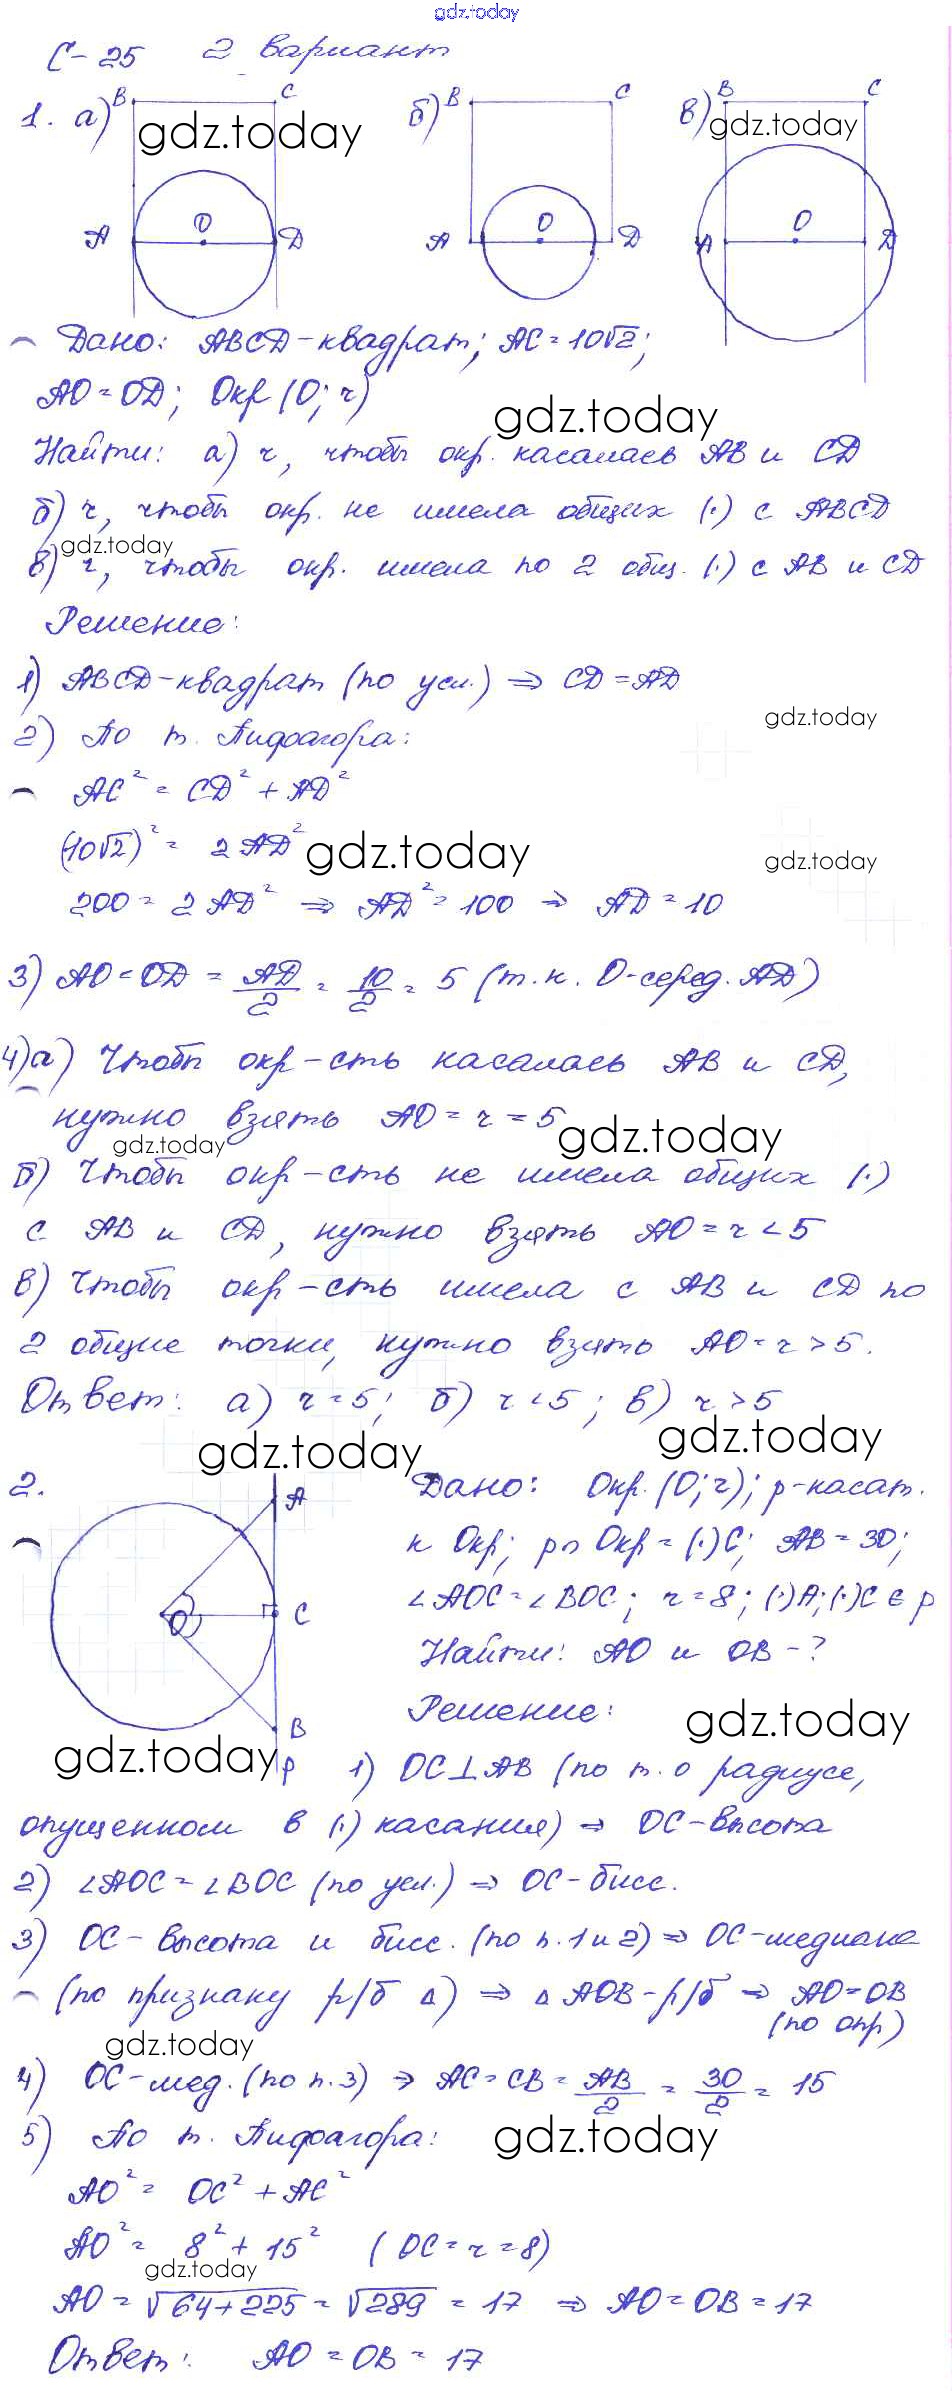 gdz.today
С-25 2 вариант
1. а) B C б) B C в) B C
gdz.today gdz.today
A O D A O D A O D
Дано: ABCD-квадрат; AC=10√2;
AO=OD; Окр(O; r)
gdz.today
Найти: а) r, чтобы окр. касалась AB и CD
б) r, чтобы окр. не имела общих (·) с ABCD
gdz.today
в) r, чтобы окр. имела по 2 общ. (·) с AB и CD
Решение:
1) ABCD-квадрат (по усл.) ⇒ CD=AD
gdz.today
2) По т. Пифагора:
AC² = CD² + AD²
(10√2)² = 2AD² gdz.today gdz.today
200 = 2AD² ⇒ AD² = 100 ⇒ AD = 10
3) AO=OD = AD/2 = 10/2 = 5 (т.к. O-серед. AD)
4)а) Чтобы окр-сть касалась AB и CD,
нужно взять AO = r = 5
gdz.today gdz.today
б) Чтобы окр-сть не имела общих (·)
с AB и CD, нужно взять AO = r < 5
в) Чтобы окр-сть имела с AB и CD по
2 общие точки, нужно взять AO = r > 5.
Ответ: а) r=5; б) r<5; в) r>5
gdz.today gdz.today
2. A O C B p
Дано: Окр.(O; r); p-касат.
к Окр; p∩Окр = (·)C; AB=30;
∠AOC=∠BOC; r=8; (·)A; (·)C ∈ p
Найти: AO и OB-?
Решение:
gdz.today gdz.today
1) OC⊥AB (по т. о радиусе,
опущенном в (·) касания) ⇒ OC-высота
2) ∠AOC=∠BOC (по усл.) ⇒ OC-бисс.
3) OC-высота и бисс. (по п. 1 и 2) ⇒ OC-медиана
(по признаку р/б △) ⇒ △AOB-р/б ⇒ AO=OB
(по опр)
gdz.today
4) OC-мед. (по п. 3) ⇒ AC=CB = AB/2 = 30/2 = 15
5) По т. Пифагора: gdz.today
AO² = OC² + AC²
AO² = 8² + 15² (OC = r = 8)
gdz.today
AO = √64+225 = √289 = 17 ⇒ AO=OB=17
Ответ: AO = OB = 17